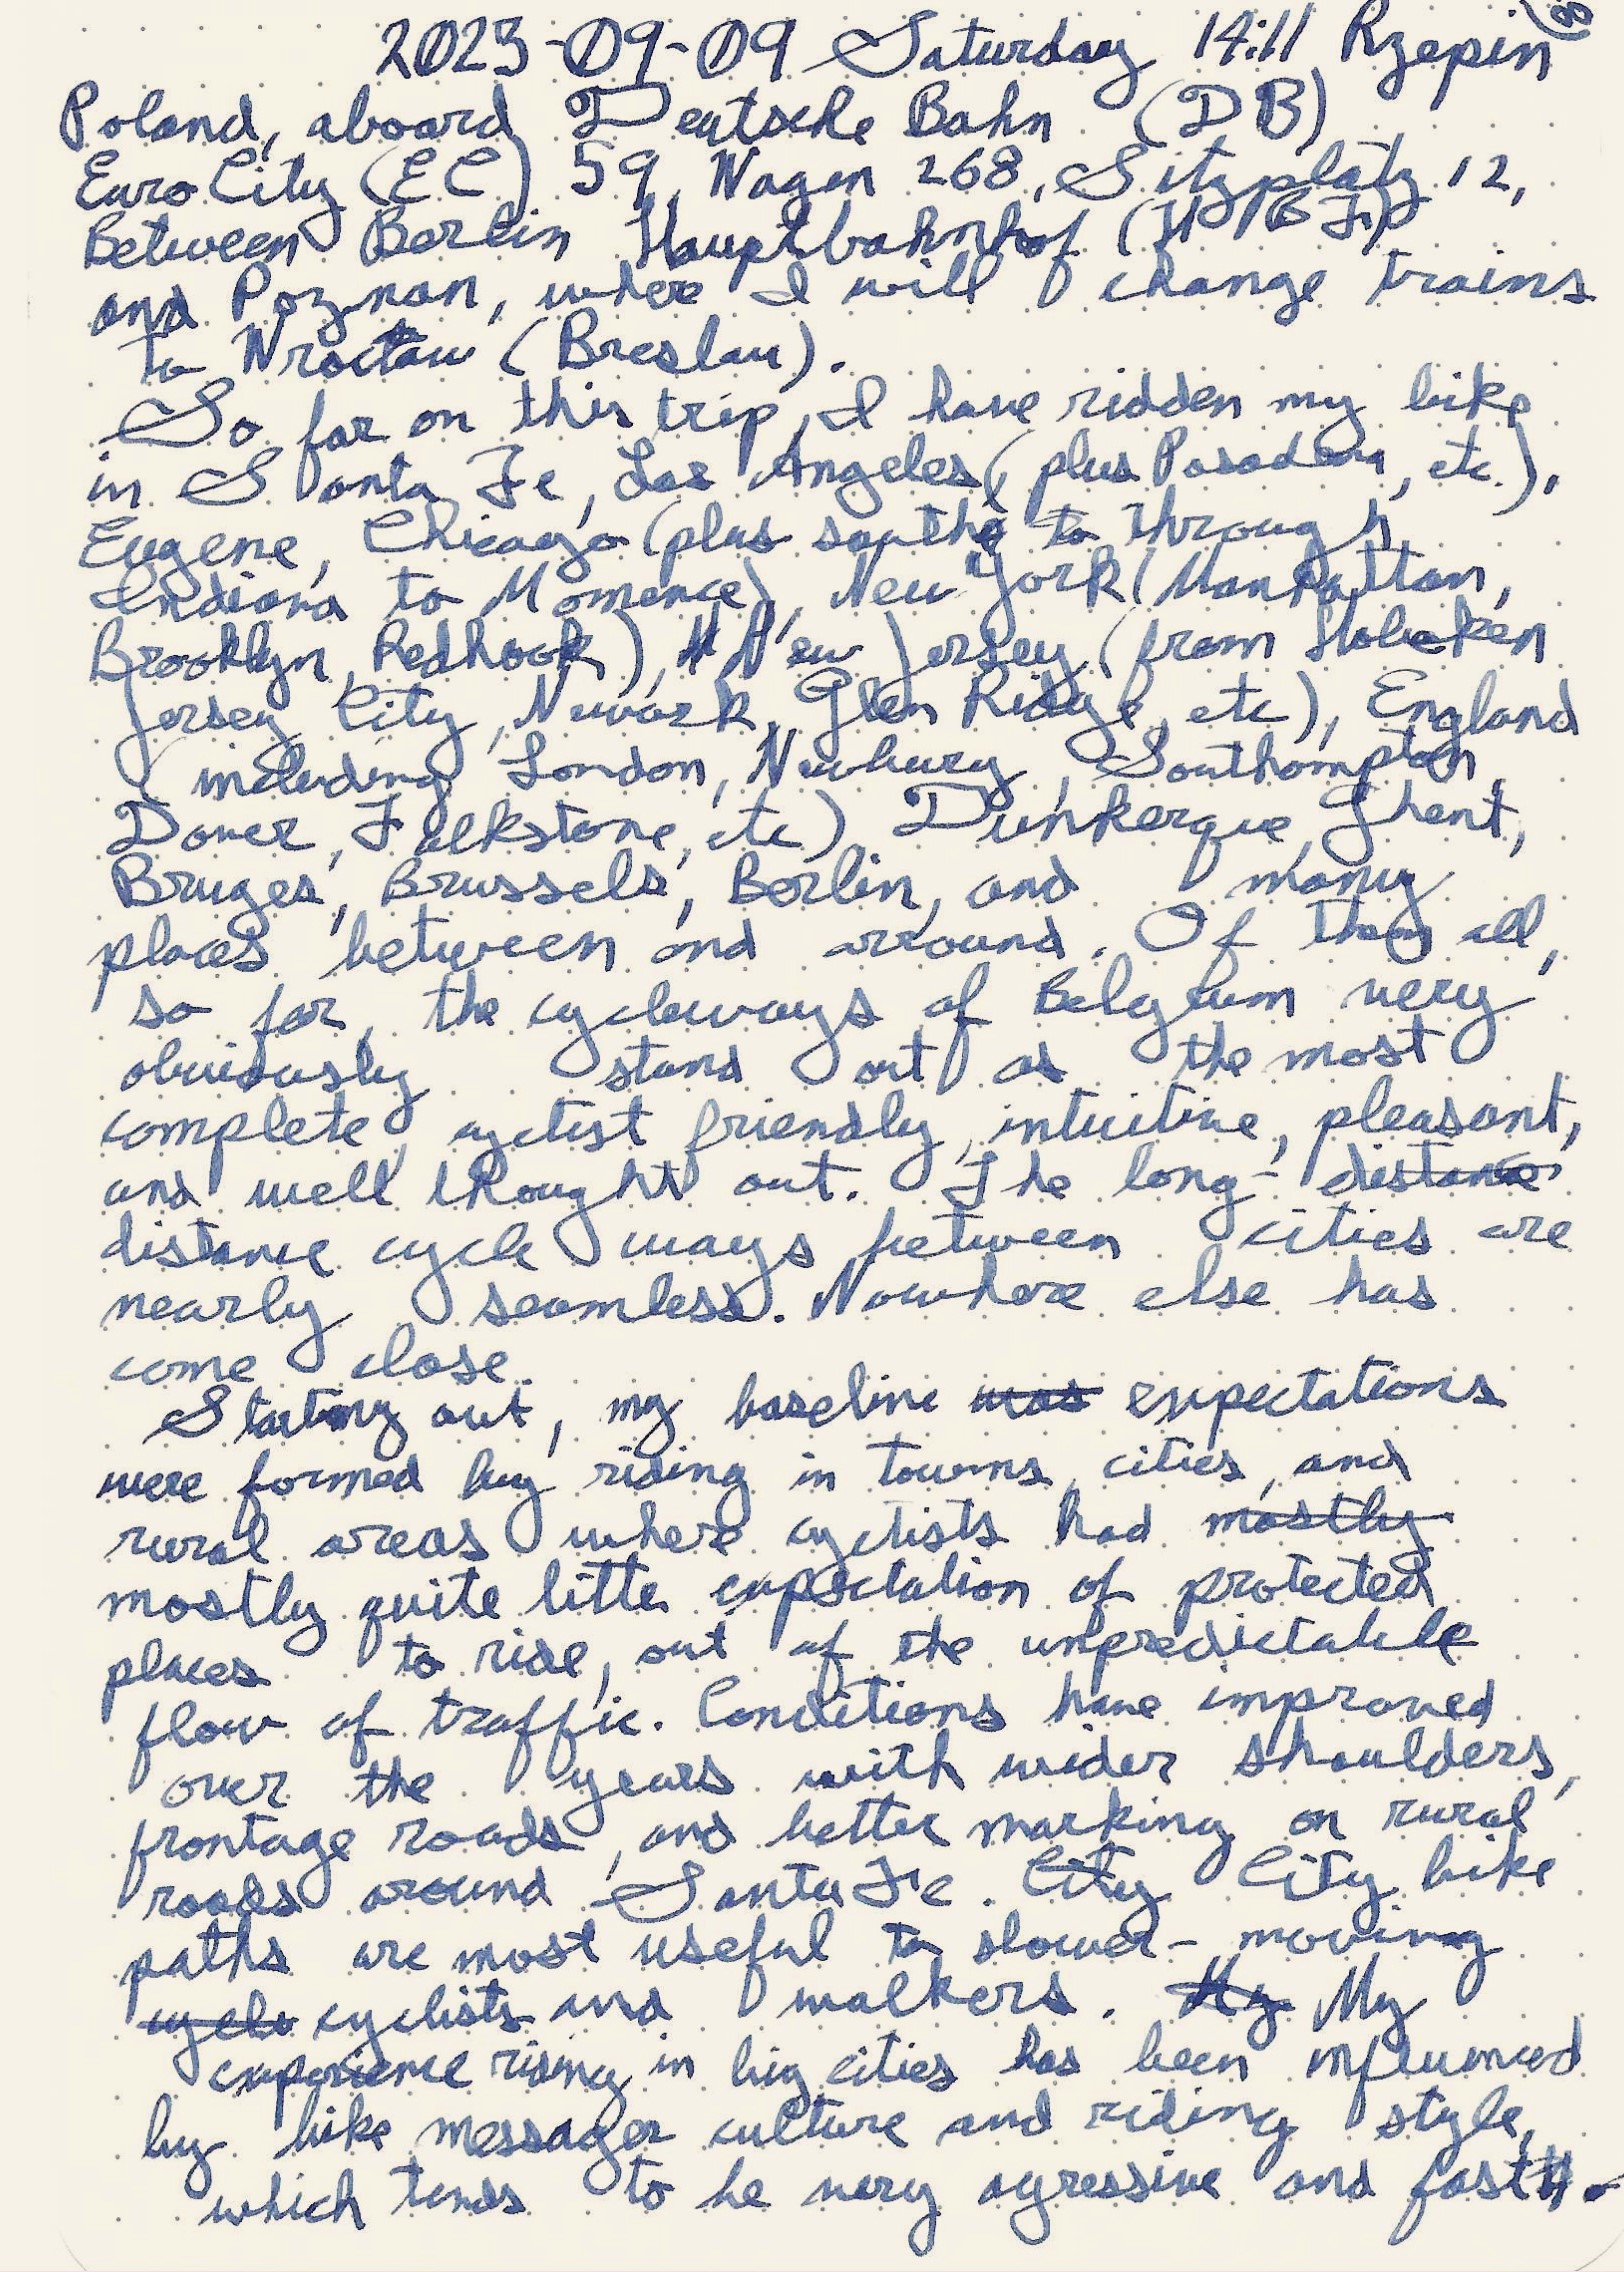 2023-09-09 Saturday 14:11 Rzepin
Poland, aboard Deutsche Bahn (DB)
EuroCity (EC) 59, Wagen 268, Sitzplatz 12,
Between Berlin Hauptbahnhof (HBF)
and Poznan, where I will change trains
to Wrocław (Breslau).
So far on this trip, I have ridden my bike
in Santa Fe, Los Angeles (plus Pasadena, etc.),
Eugene, Chicago (plus south to through
Indiana to Momence), New York (Manhattan,
Brooklyn, Redhook), New Jersey (from Hoboken
Jersey City, Newark, Glen Ridge, etc), England
(including London, Newbury, Southampton,
Dover, Falkstone, etc), Dunkerque, Ghent,
Bruges, Brussels, Berlin, and many
places between and arround. Of them all,
so far, the cycleways of Belgium very
obviously stand out as the most
complete, cyclist friendly, intuitive, pleasant,
and well thought out. The long- distance
distance cycle ways between cities are
nearly seamless. Nowhere else has
come close.
Starting out, my baseline was expectations
were formed by riding in towns, cities, and
rural areas where cyclists had mostly
mostly quite little expectation of protected
places to ride, out of the unpredictable
flow of traffic. Conditions have improved
over the years with wider shoulders,
frontage roads, and better marking on rural
roads around Santa Fe. City City bike
paths are most useful to slower-moving
cycle cyclists and walkers. My My
experience riding in big cities has been influenced
by bike messager culture and riding style,
which tends to be very agressive and fast.